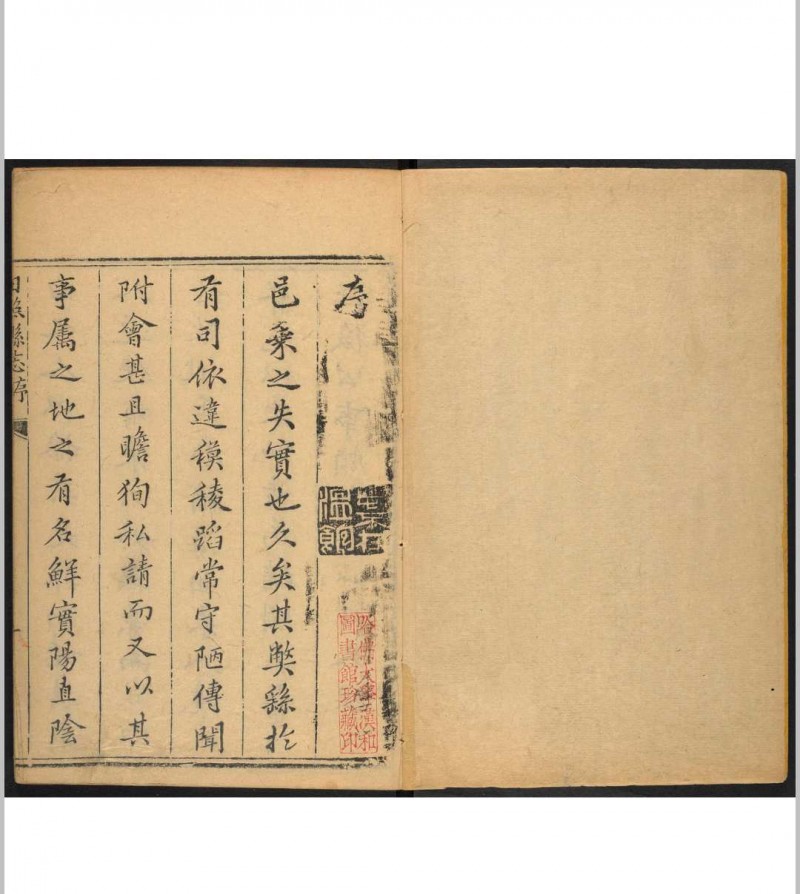 序
邑乘之失實也久矣其獘繇於
有司依違模稜蹈常守陋傳聞
附會甚且瞻狥私請而又以其
事属之地之有名鮮實陽直陰
日照縣志序
哈佛大學漢和
圖書館珍藏印